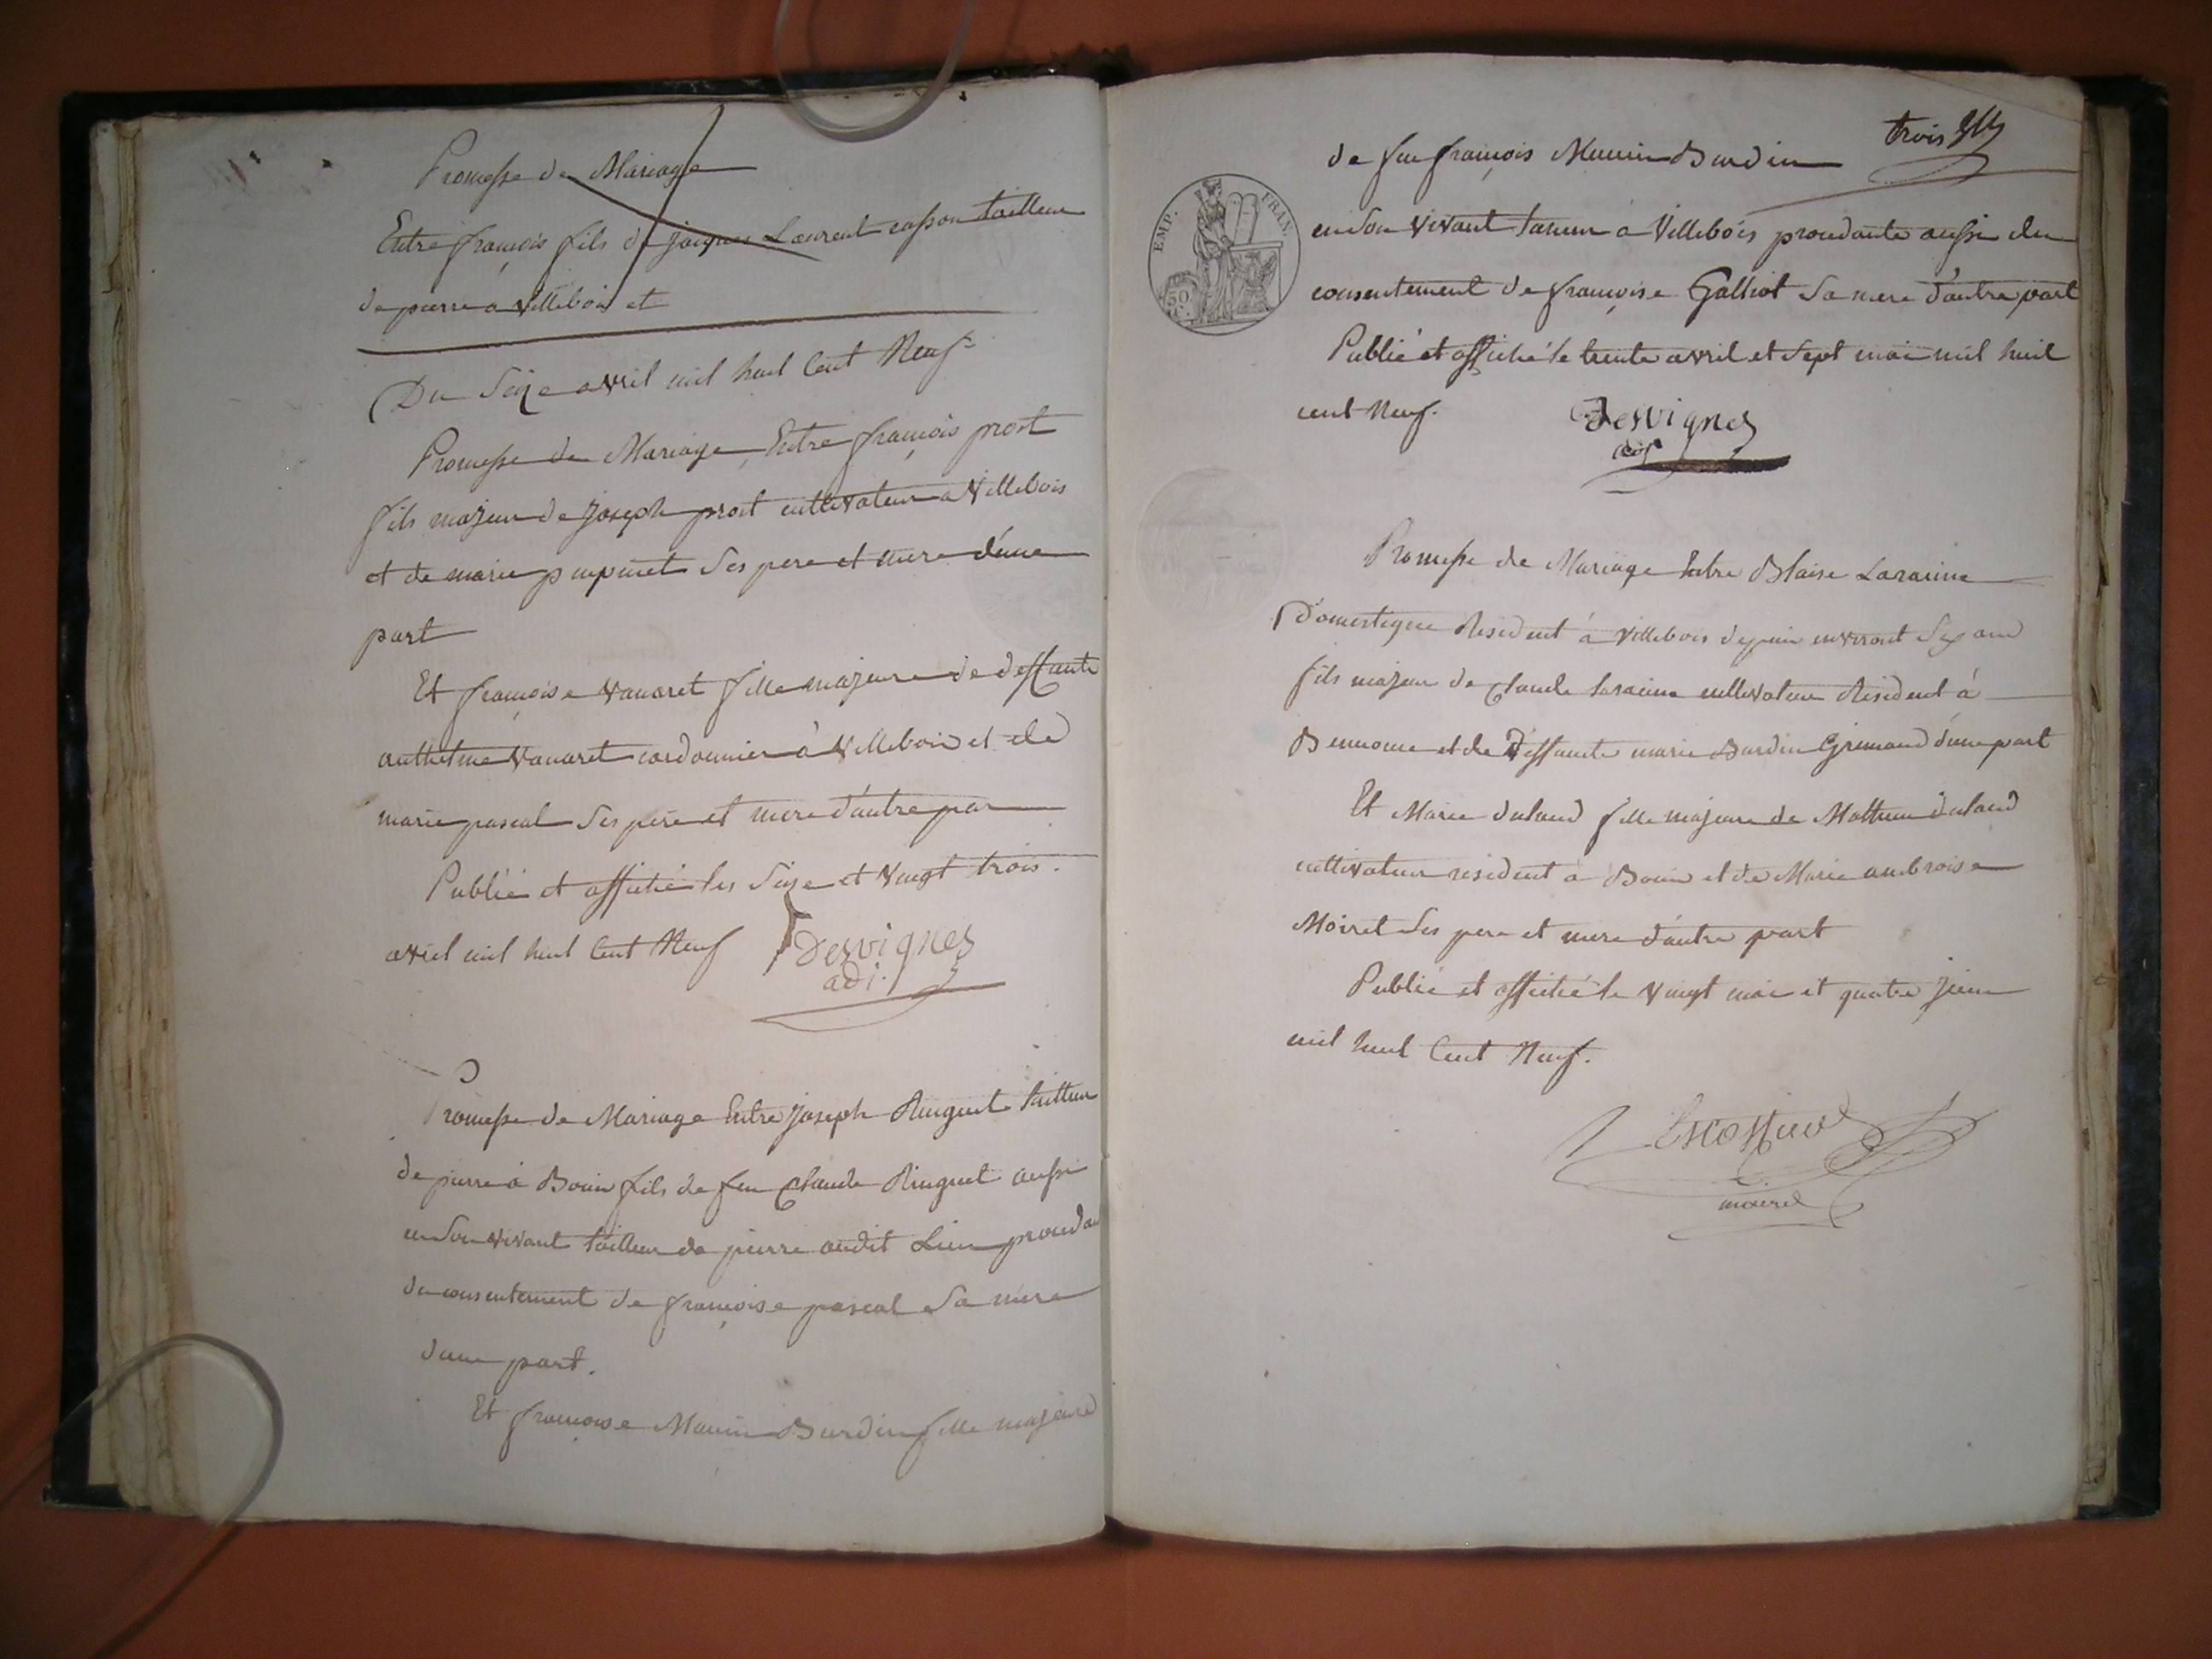 Promesse de Mariage
Entre françois fils de jacques Laurent casson tailleur
de pierre a villebois et
Du Seize avril mil huit Cent Neuf
Promesse de Mariage, Entre françois prost
fils majeur de joseph prost cultivateur a Villebois
et de marie ses pere et mere d'une
part
Et françoise vanaret fille majeure de deffante
anthelme vanaret cordonnier à Villebois et de
marie pascal ses pere et mere d'autre par
Publié et affiché les Seize et vingt trois.
avril mil huit Cent Neuf Desvignes
adj.
Promesse de Mariage Entre joseph Ringuet tailleur
de pierre à Bouis fils de feu Claude Ringuet aussi
en son vivant tailleur de pierre audit Lieu
du consentement de françoise pascal sa mere
dune part.
Et françoise Maurin Burdin fille majeure
trois
de feu françois Maurin Burdin
EMP. FRAN.
50 C.
en son vivant taneur à Villebois aussi du
consentement de françoise Galliot sa mere d'autre part
Publié et affiché le trente avril et sept mai mil huit
cent Neuf. Desvignes
adj
Promesse de Mariage Entre Blaise Laraine
Domestique Résident à villebois depuis environt Six ans
fils majeur de Claude laraine cultivateur Résident à
et de Deffante marie Burdin Grimaud d'une part
Et Marie dulaud fille majeure de Mathieu dulaud
cultivateur resident à Bouis et de Marie ambroise
Moiret ses pere et mere d'autre part
Publié et affiché le vingt mai et quatre juin
mil huit Cent Neuf.